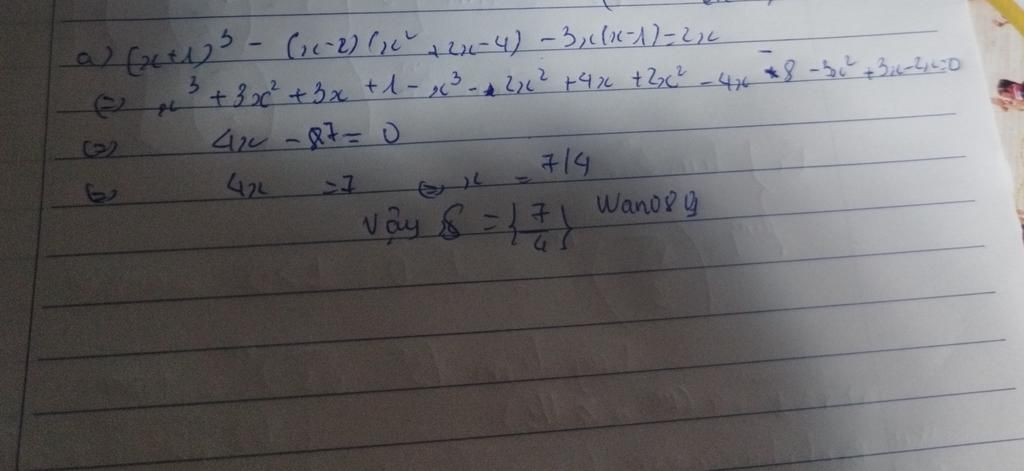 a) (x+1)³ - (x-2)(x² + 2x-4) - 3x(x-1) = 2x
(=) x³ + 3x² + 3x + 1 - x³ - 2x² + 4x + 2x² - 4x - 8 - 3x² + 3x - 2x = 0
(=) 4x - 7 = 0
(=) 4x = 7 (=) x = 7/4
Vậy S = {7/4} Wano8g